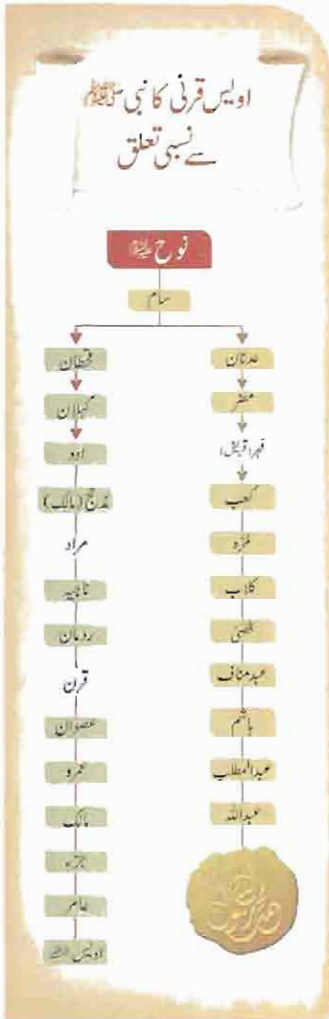 اویس قرنی کا نبی ﷺ
سے نسبی تعلق
نوح علیہ السلام
سام
عدنان
مضر
فہر (قریش)
کعب
مُرّہ
کلاب
قصی
عبدمناف
ہاشم
عبدالمطلب
عبداللہ
محمد رسول اللہ
قحطان
کہلان
ادد
مذحج (مالک)
مراد
ناجیہ
ردمان
قرن
عصوان
عمرو
مالک
جزء
عامر
اویس